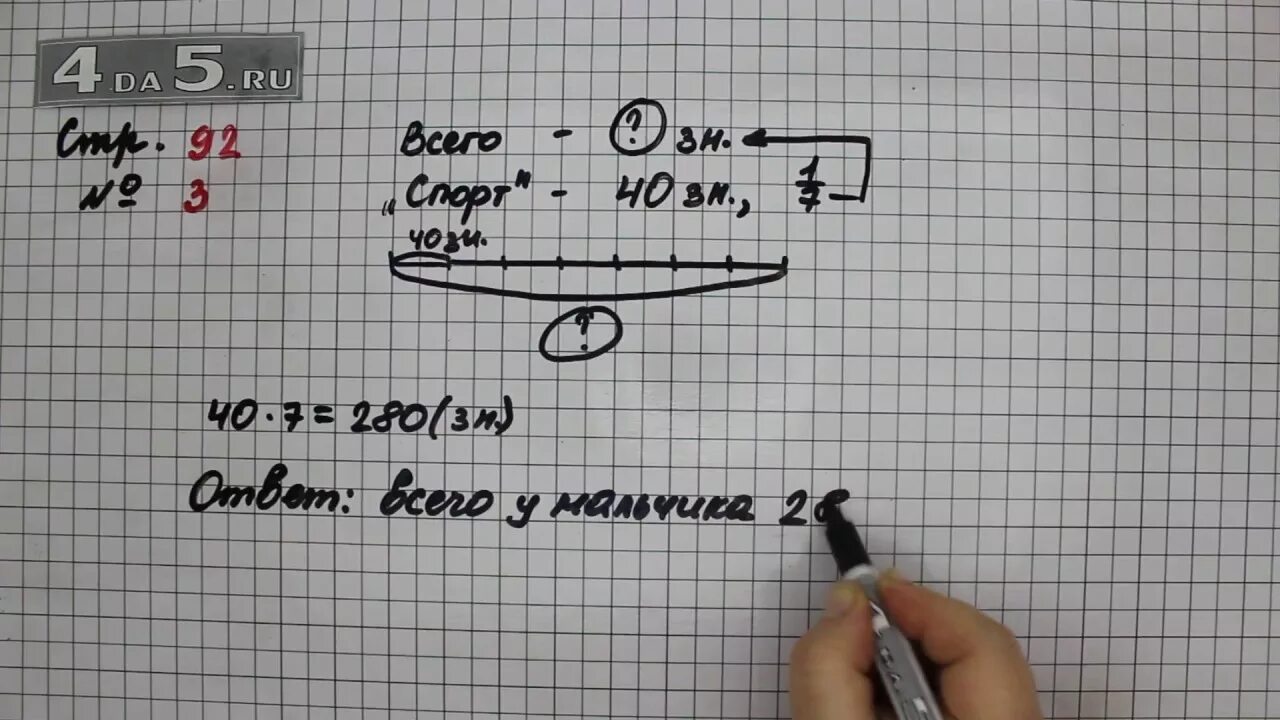 4DA5.RU
Стр. 92
№ 3
Всего - ? зн.
„Спорт" - 40 зн., 1/7
40 зн.
?
40 · 7 = 280 (зн.)
Ответ: всего у мальчика 28